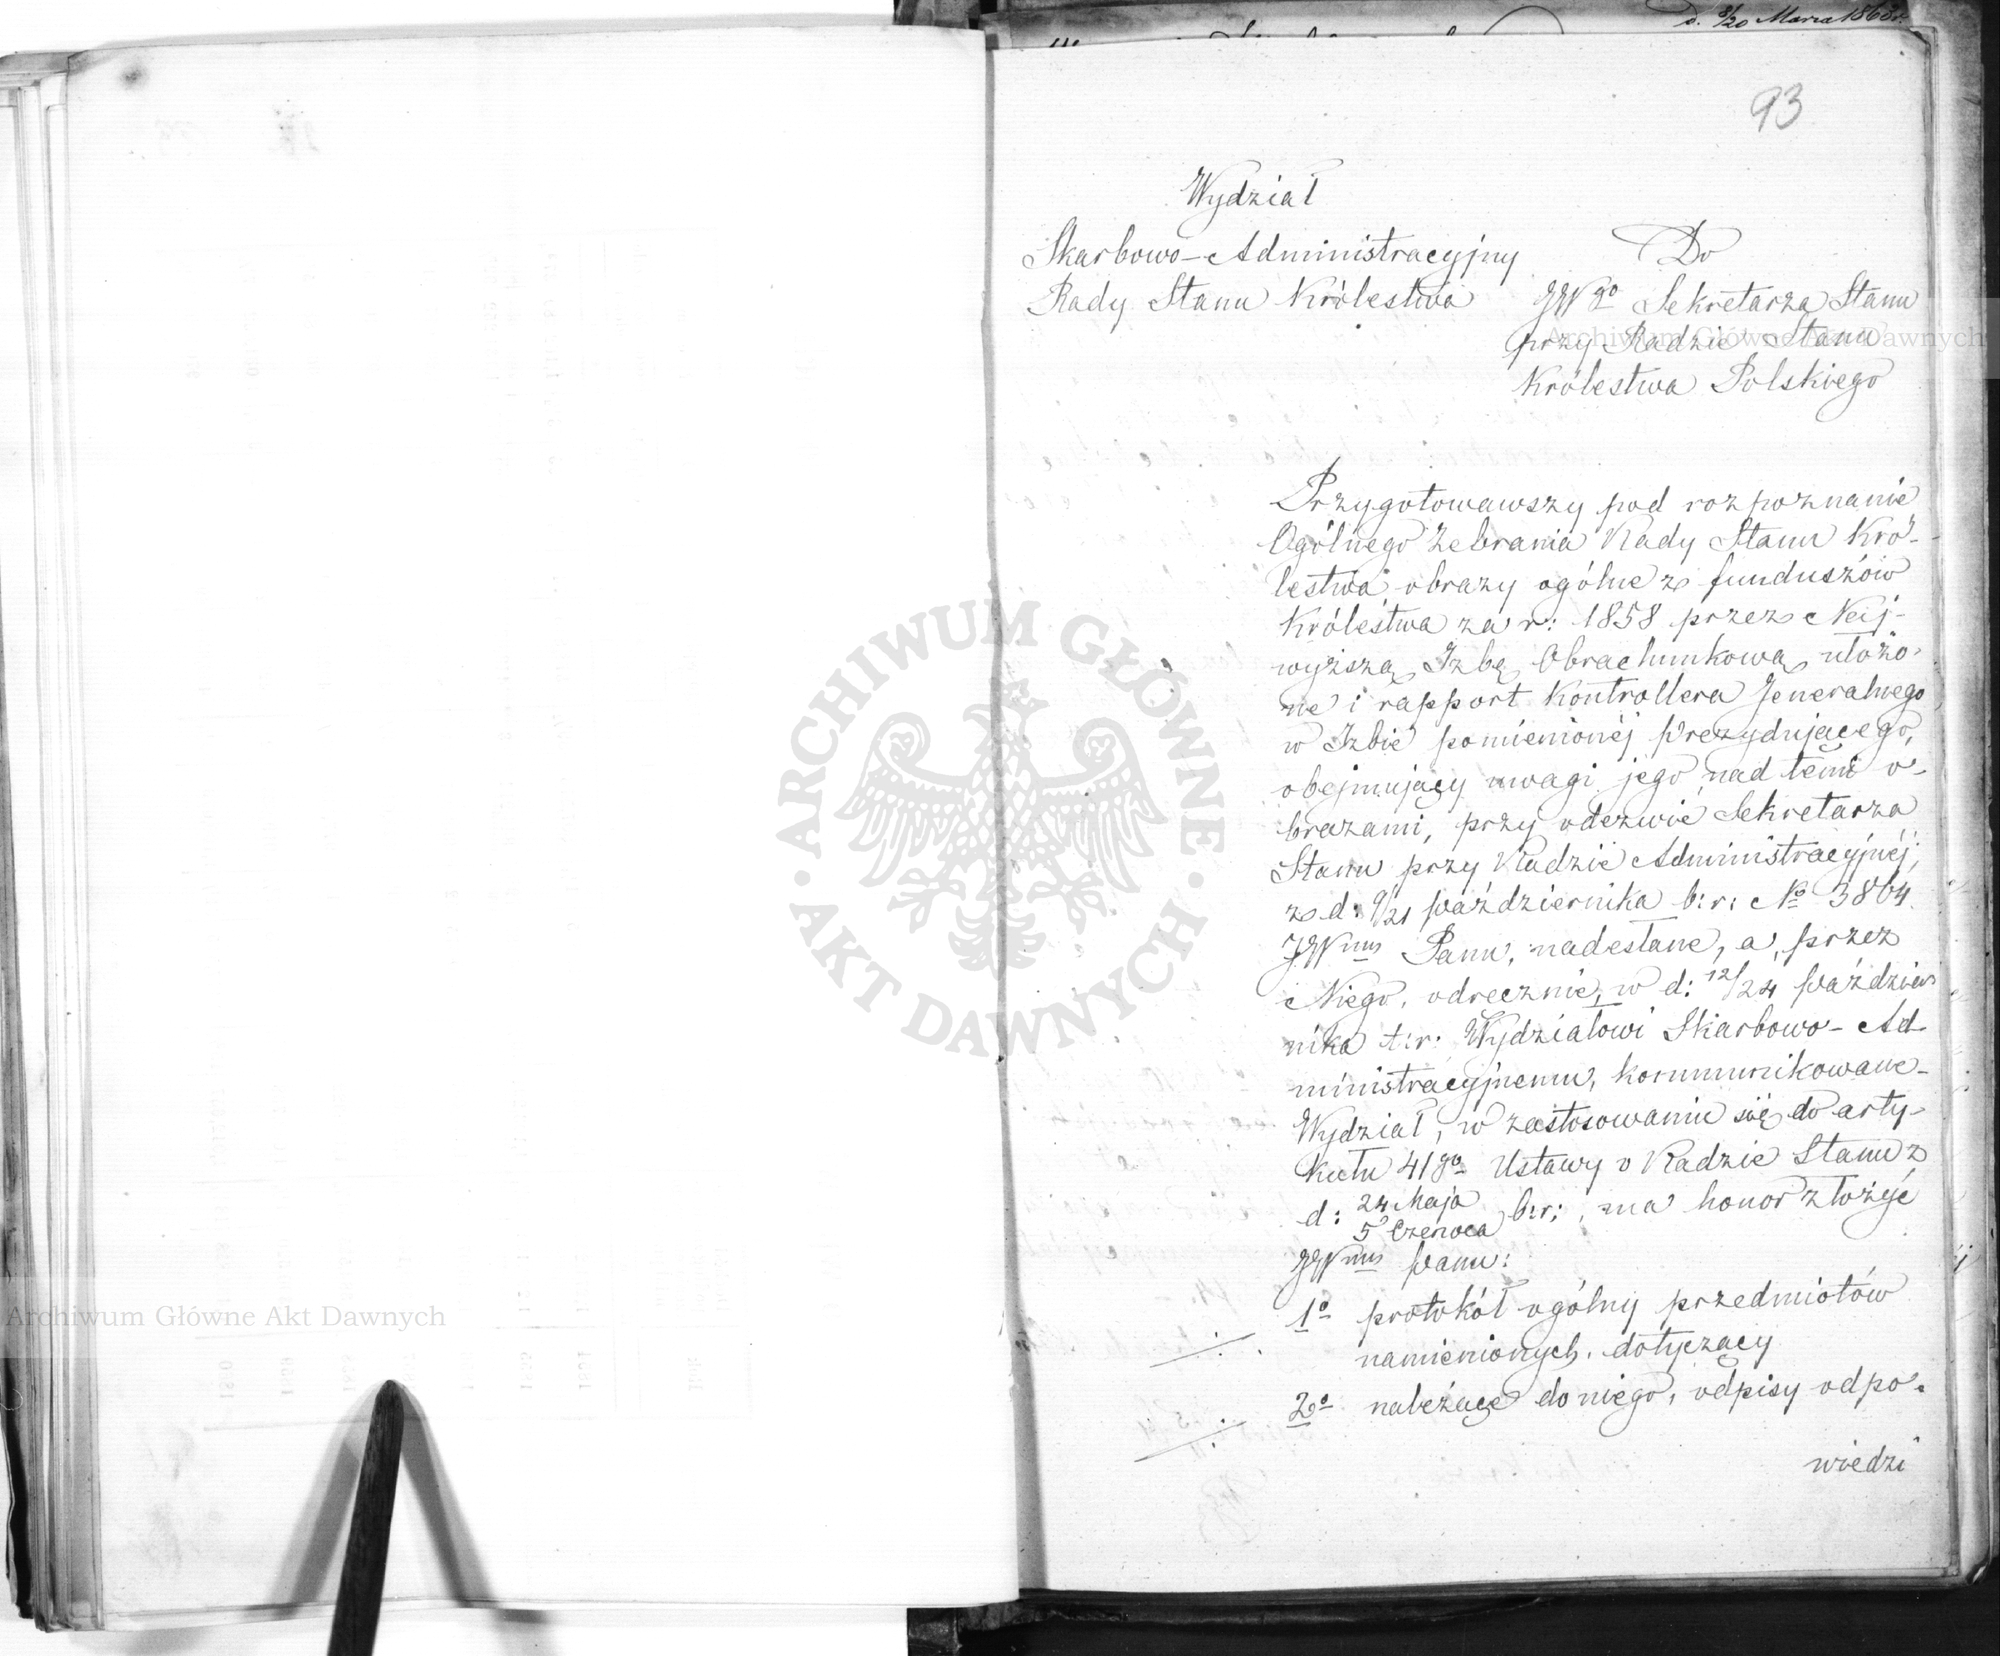 d. 8/20 Marca 1863 r.
93
Wydział
Skarbowo-Administracyjny
Rady Stanu Królestwa
Do
JWgo Sekretarza Stanu
przy Radzie Stanu
Królestwa Polskiego
Przygotowawszy pod rozpoznanie
Ogólnego Zebrania Rady Stanu Kró-
lestwa obrazy ogólne z funduszów
Królestwa za r: 1858 przez Naj-
wyższą Izbę Obrachunkową ułożo-
ne i rapport Kontrollera Jeneralnego,
w Izbie pomienionéj Prezydującego,
obejmujący uwagi jego nad temi o-
brazami, przy odezwie Sekretarza
Stanu przy Radzie Administracyjnéj,
z d: 9/21 Października b:r: No 3864
JWmu Panu, nadesłane, a, przez
Niego, odręcznie, w d: 12/24 Paździer-
nika t:r: Wydziałowi Skarbowo-Ad-
ministracyjnemu, kommunikowane-
Wydział, w zastosowaniu się do arty-
kułu 41go Ustawy o Radzie Stanu z
d: 24 Maja / 5 Czerwca b:r:, ma honor złożyć
JWmu Panu:
1o protokół ogólny przedmiotów
namienionych dotyczący
2o należące do niego, odpisy odpo-
wiedzi
ARCHIWUM GŁÓWNE
AKT DAWNYCH
Archiwum Główne Akt Dawnych
Archiwum Główne Akt Dawnych